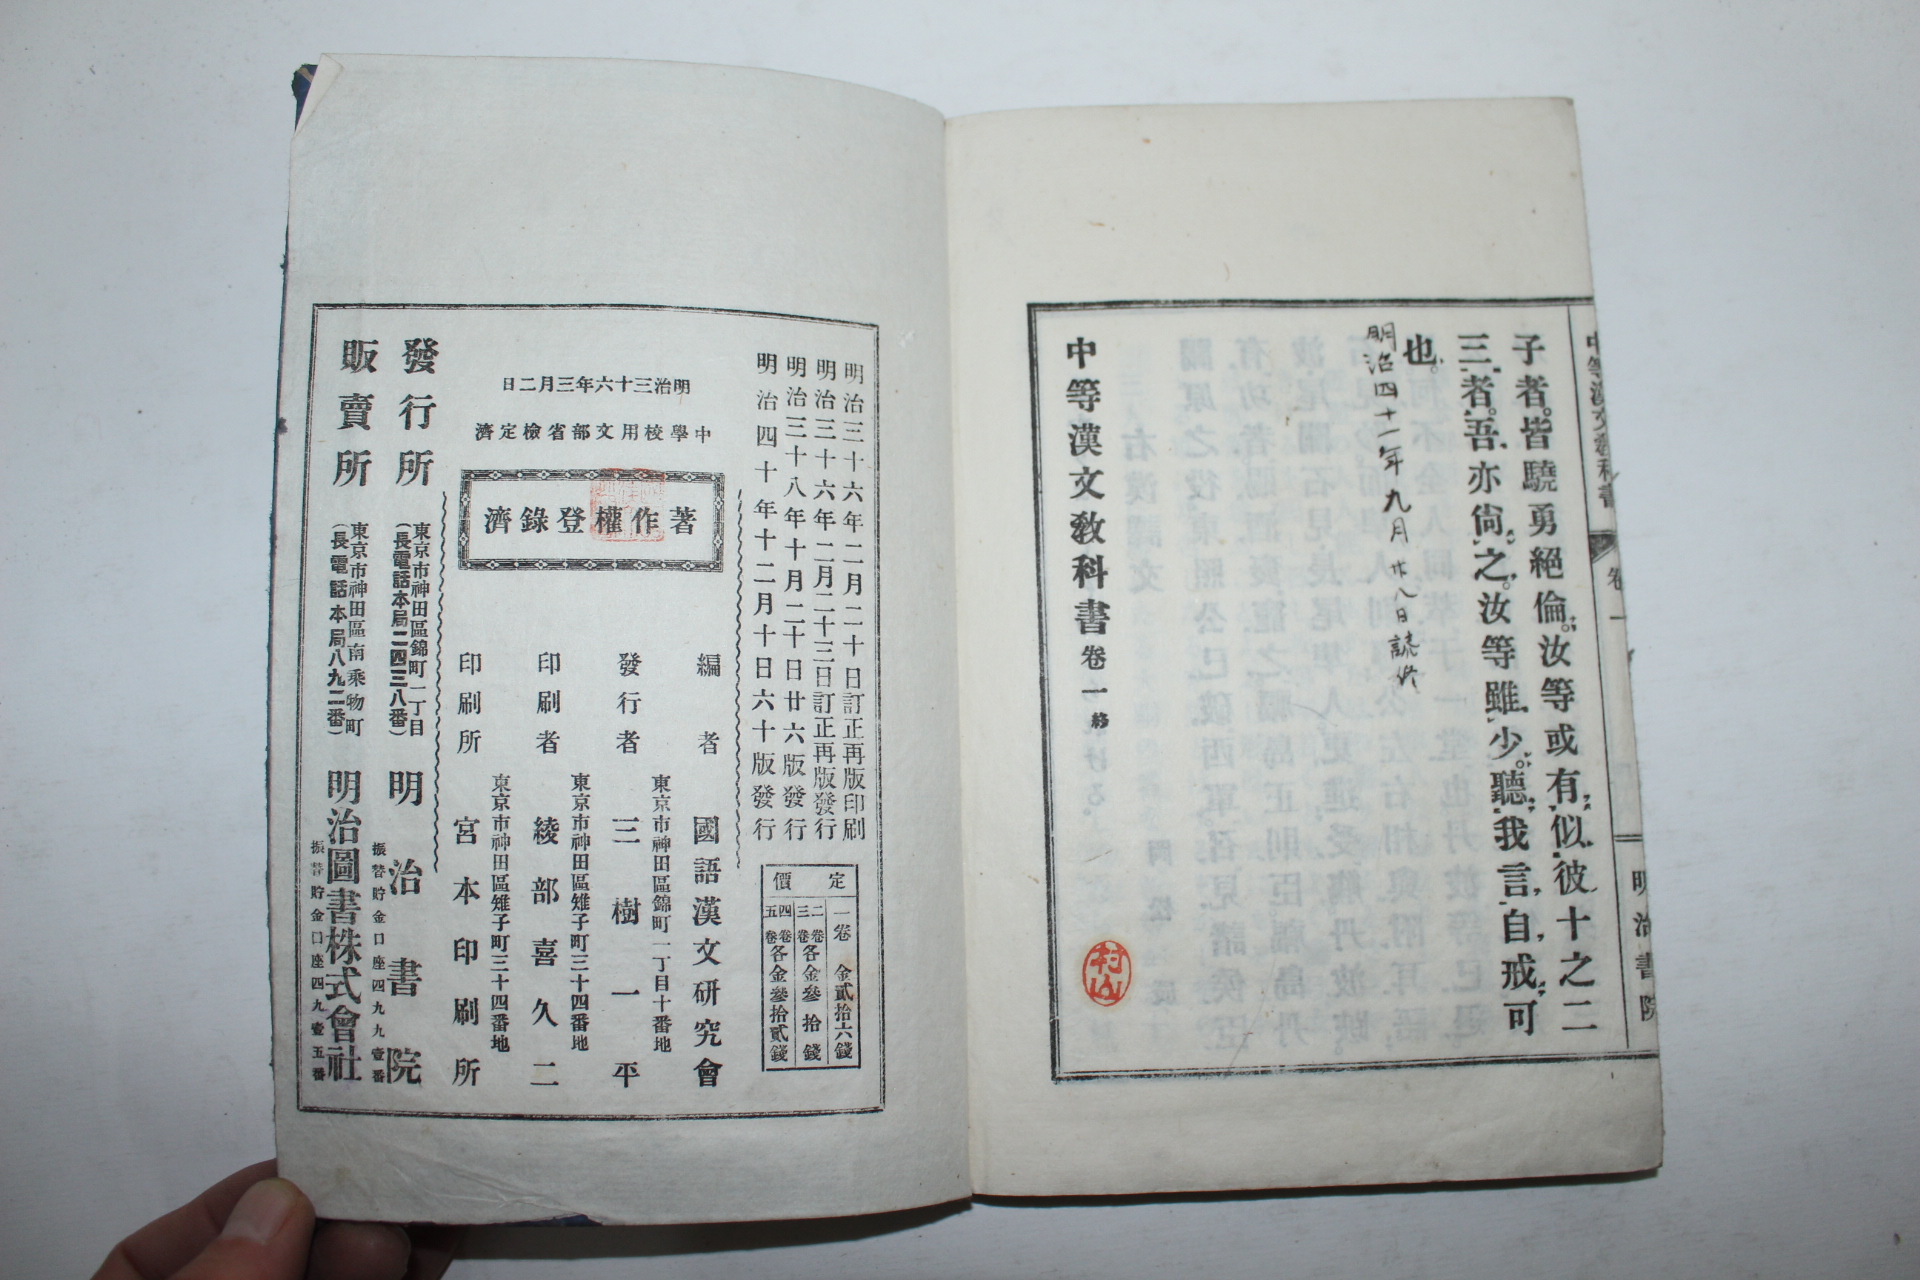 中等漢文教科書 卷一 明治書院
子者。皆驍勇絕倫。汝等或有似彼十之二
三者。吾亦尙之。汝等雖少。聽我言自戒可
也。
明治四十一年九月廿八日
中等漢文教科書卷一 終
村山
明治三十六年二月二十日訂正再版印刷
明治三十六年二月二十三日訂正再版發行
明治三十八年十月二十日廿六版發行
明治四十年十二月十日六十版發行
定價
一卷 金貳拾六錢
二卷三卷 各金參拾錢
四卷五卷 各金參拾貳錢
明治三十六年三月二日
中學校用文部省檢定濟
著作權登錄濟
編者 國語漢文硏究會
東京市神田區錦町一丁目十番地
發行者 三樹一平
東京市神田區雉子町三十四番地
印刷者 綾部喜久二
東京市神田區雉子町三十四番地
印刷所 宮本印刷所
發行所 東京市神田區錦町一丁目 (長電話本局二四三八番) 明治書院
振替貯金口座四九九壹番
販賣所 東京市神田區南乘物町 (長電話本局八九二番) 明治圖書株式會社
振替貯金口座四九壹五番